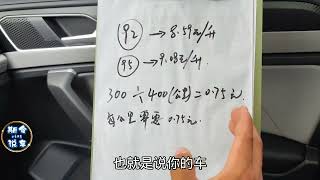 92 → 8.59元/升
95 → 9.08元/升
300 ÷ 400(公里) = 0.75元.
每公里需要 0.75元.
也就是说你的车